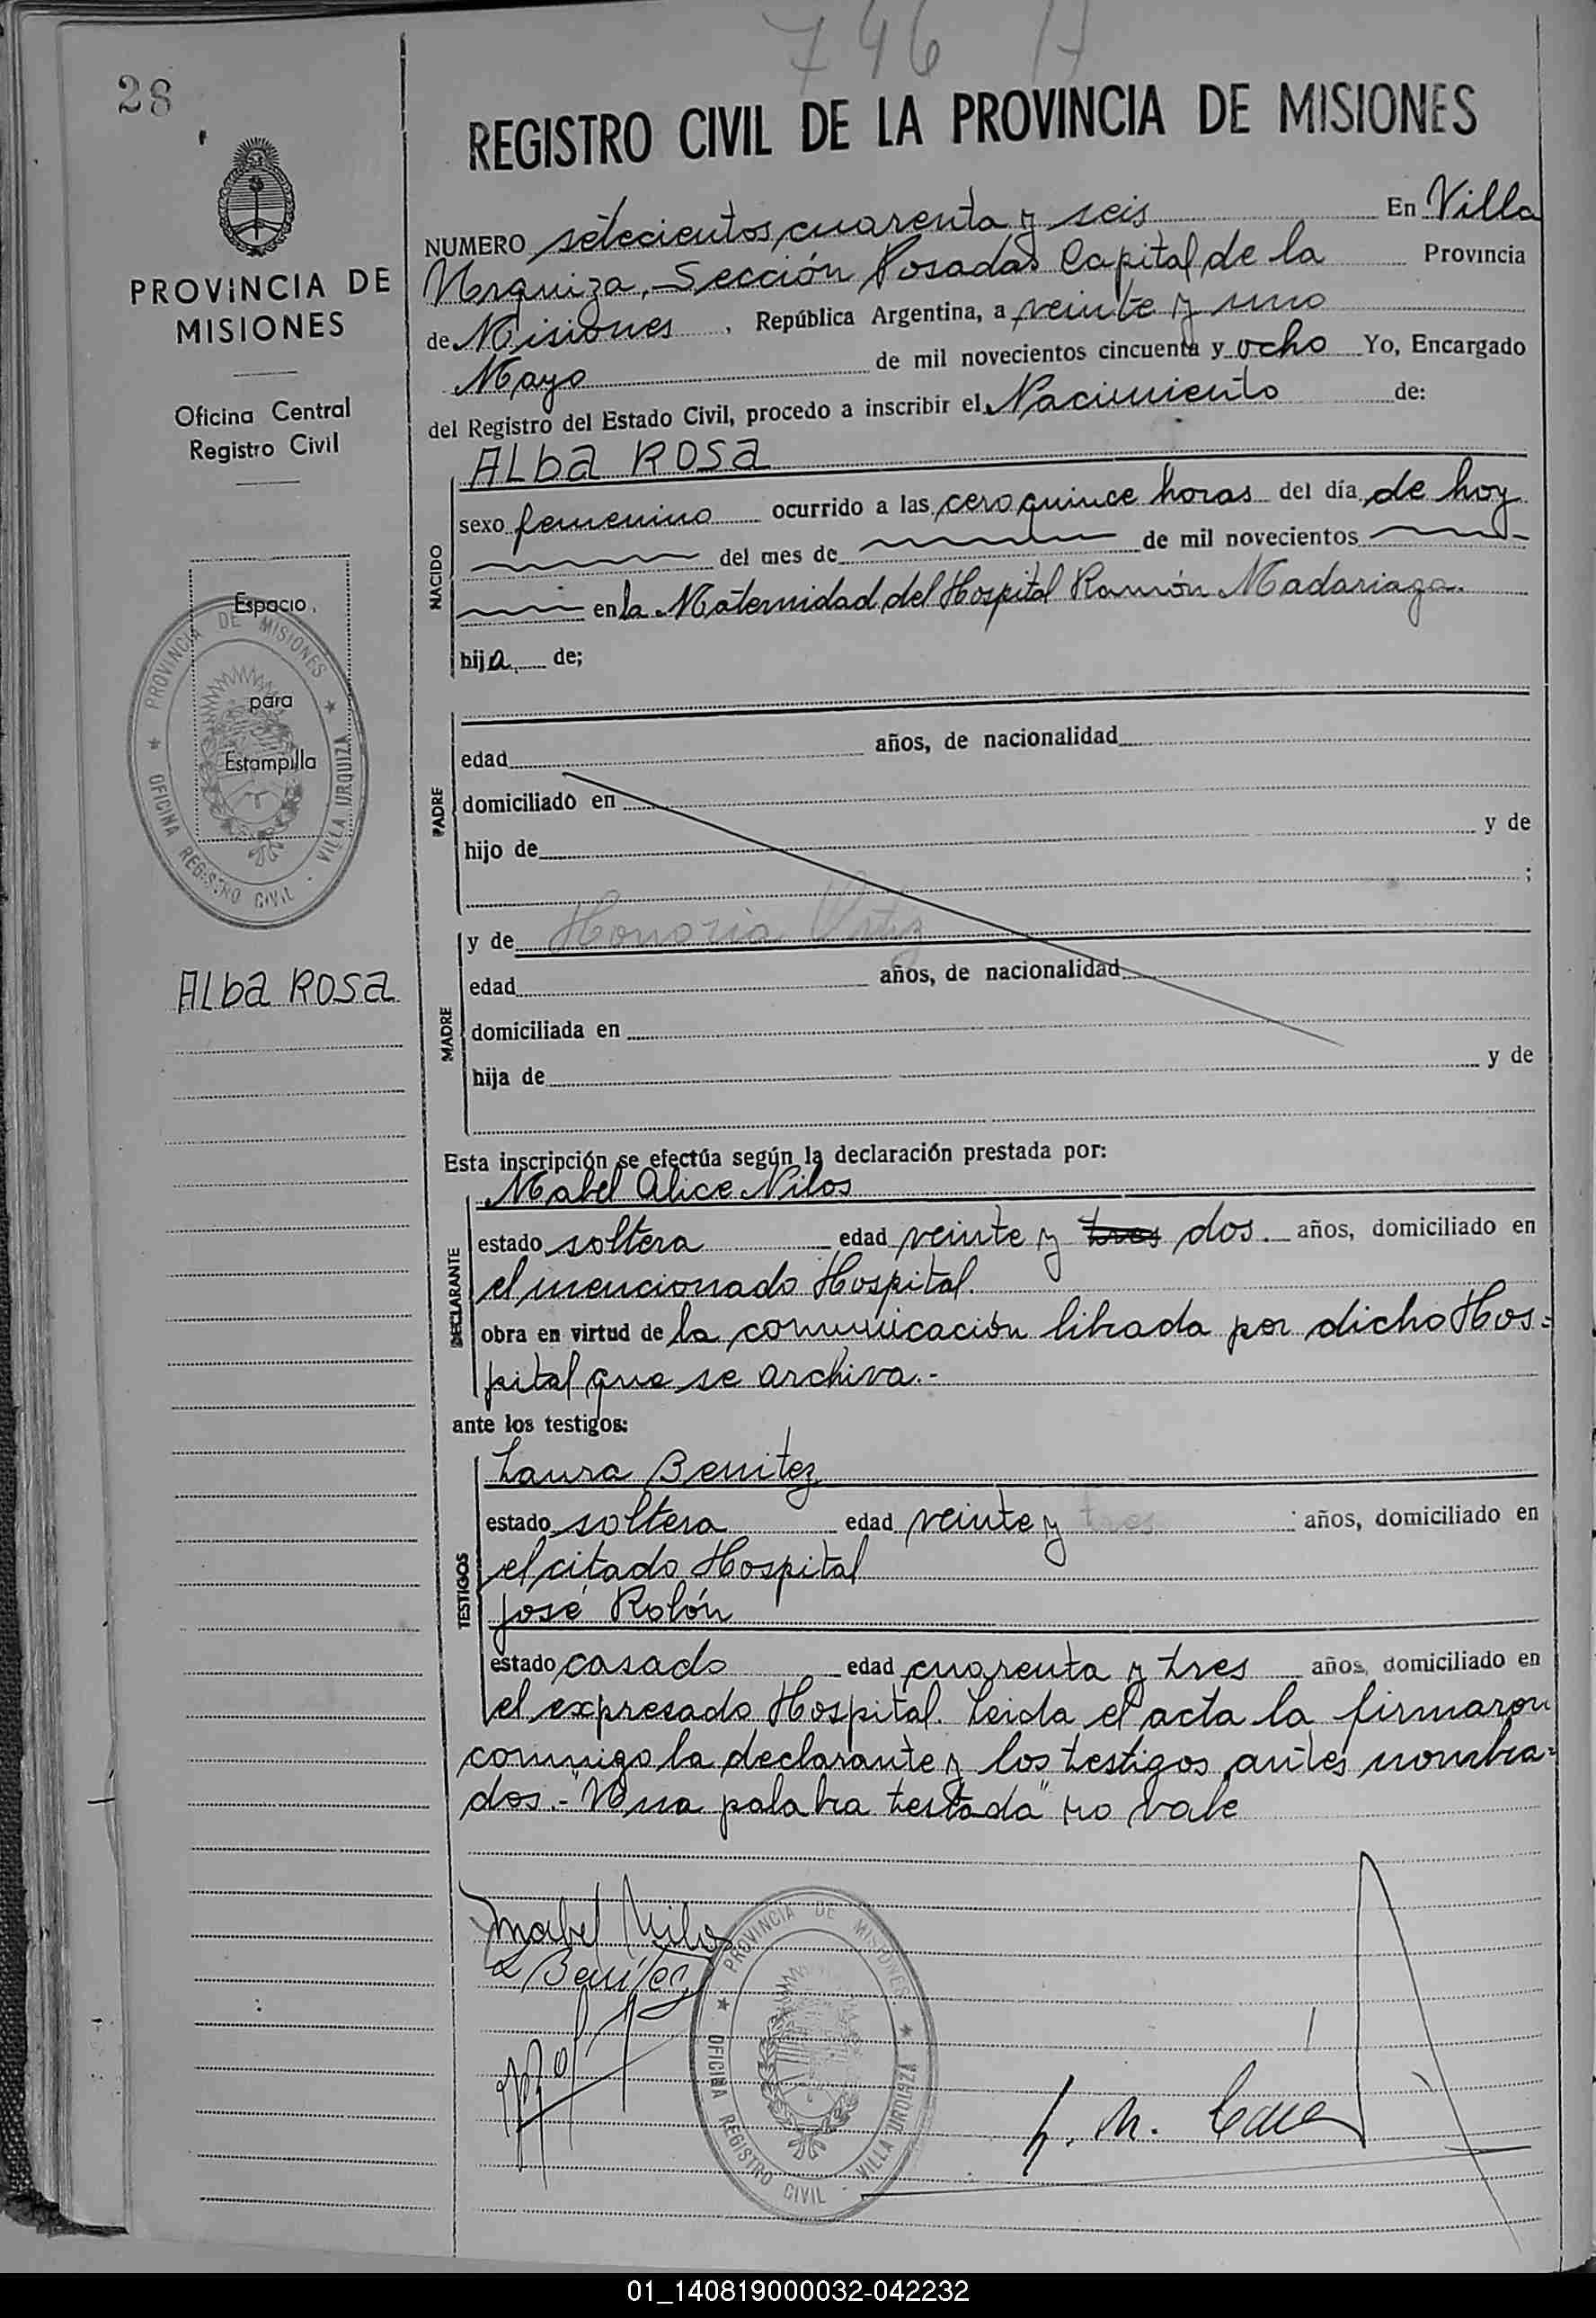 746 A
28
REGISTRO CIVIL DE LA PROVINCIA DE MISIONES
PROVINCIA DE
MISIONES
Oficina Central
Registro Civil
Espacio
para
Estampilla
PROVINCIA DE MISIONES
OFICINA REGISTRO CIVIL - VILLA URQUIZA
ALba ROSa
NUMERO setecientos cuarenta y seis En Villa
Urquiza, Sección Posadas Capital de la Provincia
de Misiones, República Argentina, a veinte y uno
Mayo de mil novecientos cincuenta y ocho Yo, Encargado
del Registro del Estado Civil, procedo a inscribir el Nacimiento de:
NACIDO
ALba ROSa
sexo femenino ocurrido a las cero quince horas del día de hoy
del mes de de mil novecientos
en la Maternidad del Hospital Ramón Madariaga.
hija de;
PADRE
edad años, de nacionalidad
domiciliado en
hijo de y de
;
MADRE
y de Honoria Ortiz
edad años, de nacionalidad
domiciliada en
hija de y de
Esta inscripción se efectúa según la declaración prestada por:
DECLARANTE
Mabel Alice Nilos
estado soltera edad veinte y tres dos. años, domiciliado en
el mencionado Hospital.
obra en virtud de la comunicación librada por dicho Hos=
pital que se archiva.-
ante los testigos:
TESTIGOS
Laura Benitez
estado soltera edad veinte y tres años, domiciliado en
el citado Hospital
José Rolón
estado casado edad cuarenta y tres años, domiciliado en
el expresado Hospital. Leida el acta la firmaron
conmigo la declarante y los testigos antes nombra=
dos.- "Una palabra testada" no vale
Mabel Nilos
L Benitez
PROVINCIA DE MISIONES
OFICINA REGISTRO CIVIL - VILLA URQUIZA
01_140819000032-042232